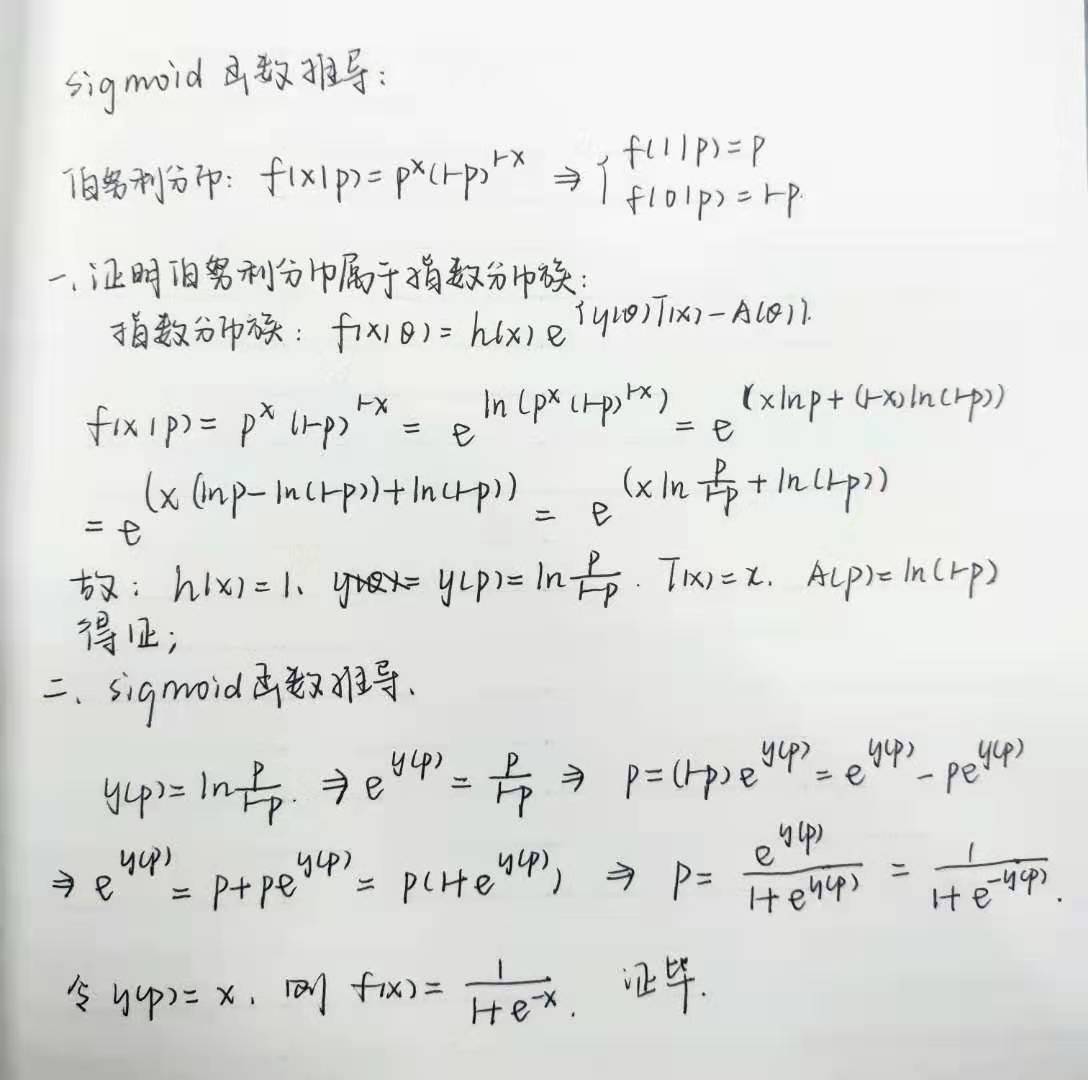 sigmoid 函数推导：
伯努利分布： f(x|p) = p^x(1-p)^{1-x} ⇒ { f(1|p) = p
f(0|p) = 1-p.
一、证明伯努利分布属于指数分布族：
指数分布族： f(x|θ) = h(x) e^{{y(θ)T(x) - A(θ)}}.
f(x|p) = p^x (1-p)^{1-x} = e^{ln(p^x(1-p)^{1-x})} = e^{(xlnp + (1-x)ln(1-p))}
= e^{(x(lnp - ln(1-p)) + ln(1-p))} = e^{(x ln \frac{p}{1-p} + ln(1-p))}
故： h(x) = 1、 y(p) = ln \frac{p}{1-p}. T(x) = x. A(p) = ln(1-p)
得证；
二、sigmoid函数推导.
y(p) = ln \frac{p}{1-p}. ⇒ e^{y(p)} = \frac{p}{1-p} ⇒ p = (1-p)e^{y(p)} = e^{y(p)} - pe^{y(p)}
⇒ e^{y(p)} = p + pe^{y(p)} = p(1+e^{y(p)}) ⇒ p = \frac{e^{y(p)}}{1+e^{y(p)}} = \frac{1}{1+e^{-y(p)}}.
令 y(p) = x. 则 f(x) = \frac{1}{1+e^{-x}}. 证毕.